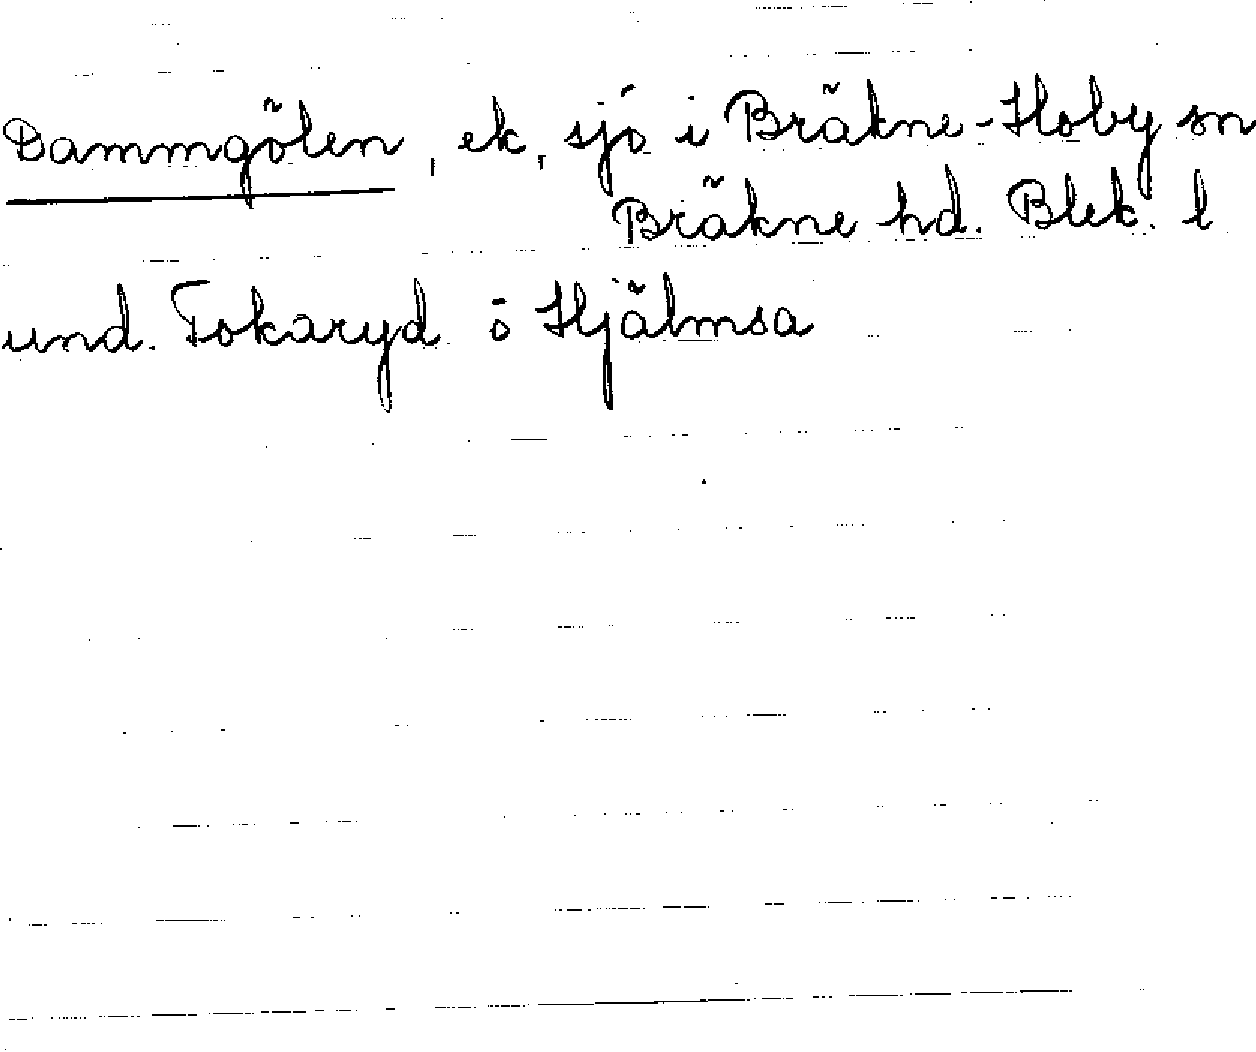 Dammgölen, ek, sjö i Bräkne-Hoby sn
Bräkne hd. Blek. l
und. Tokaryd ö Hjälmsa